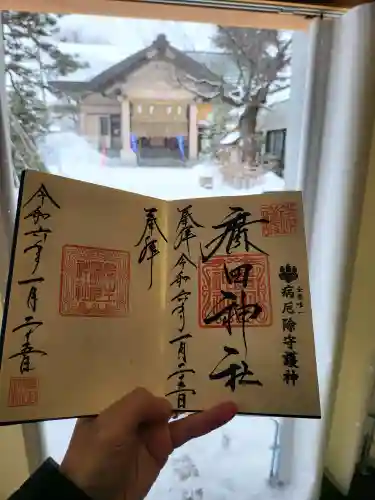 全国唯一
病厄除守護神
廣田神社
奉拝
令和六年一月二十三日
奉拝
令和六年一月二十三日